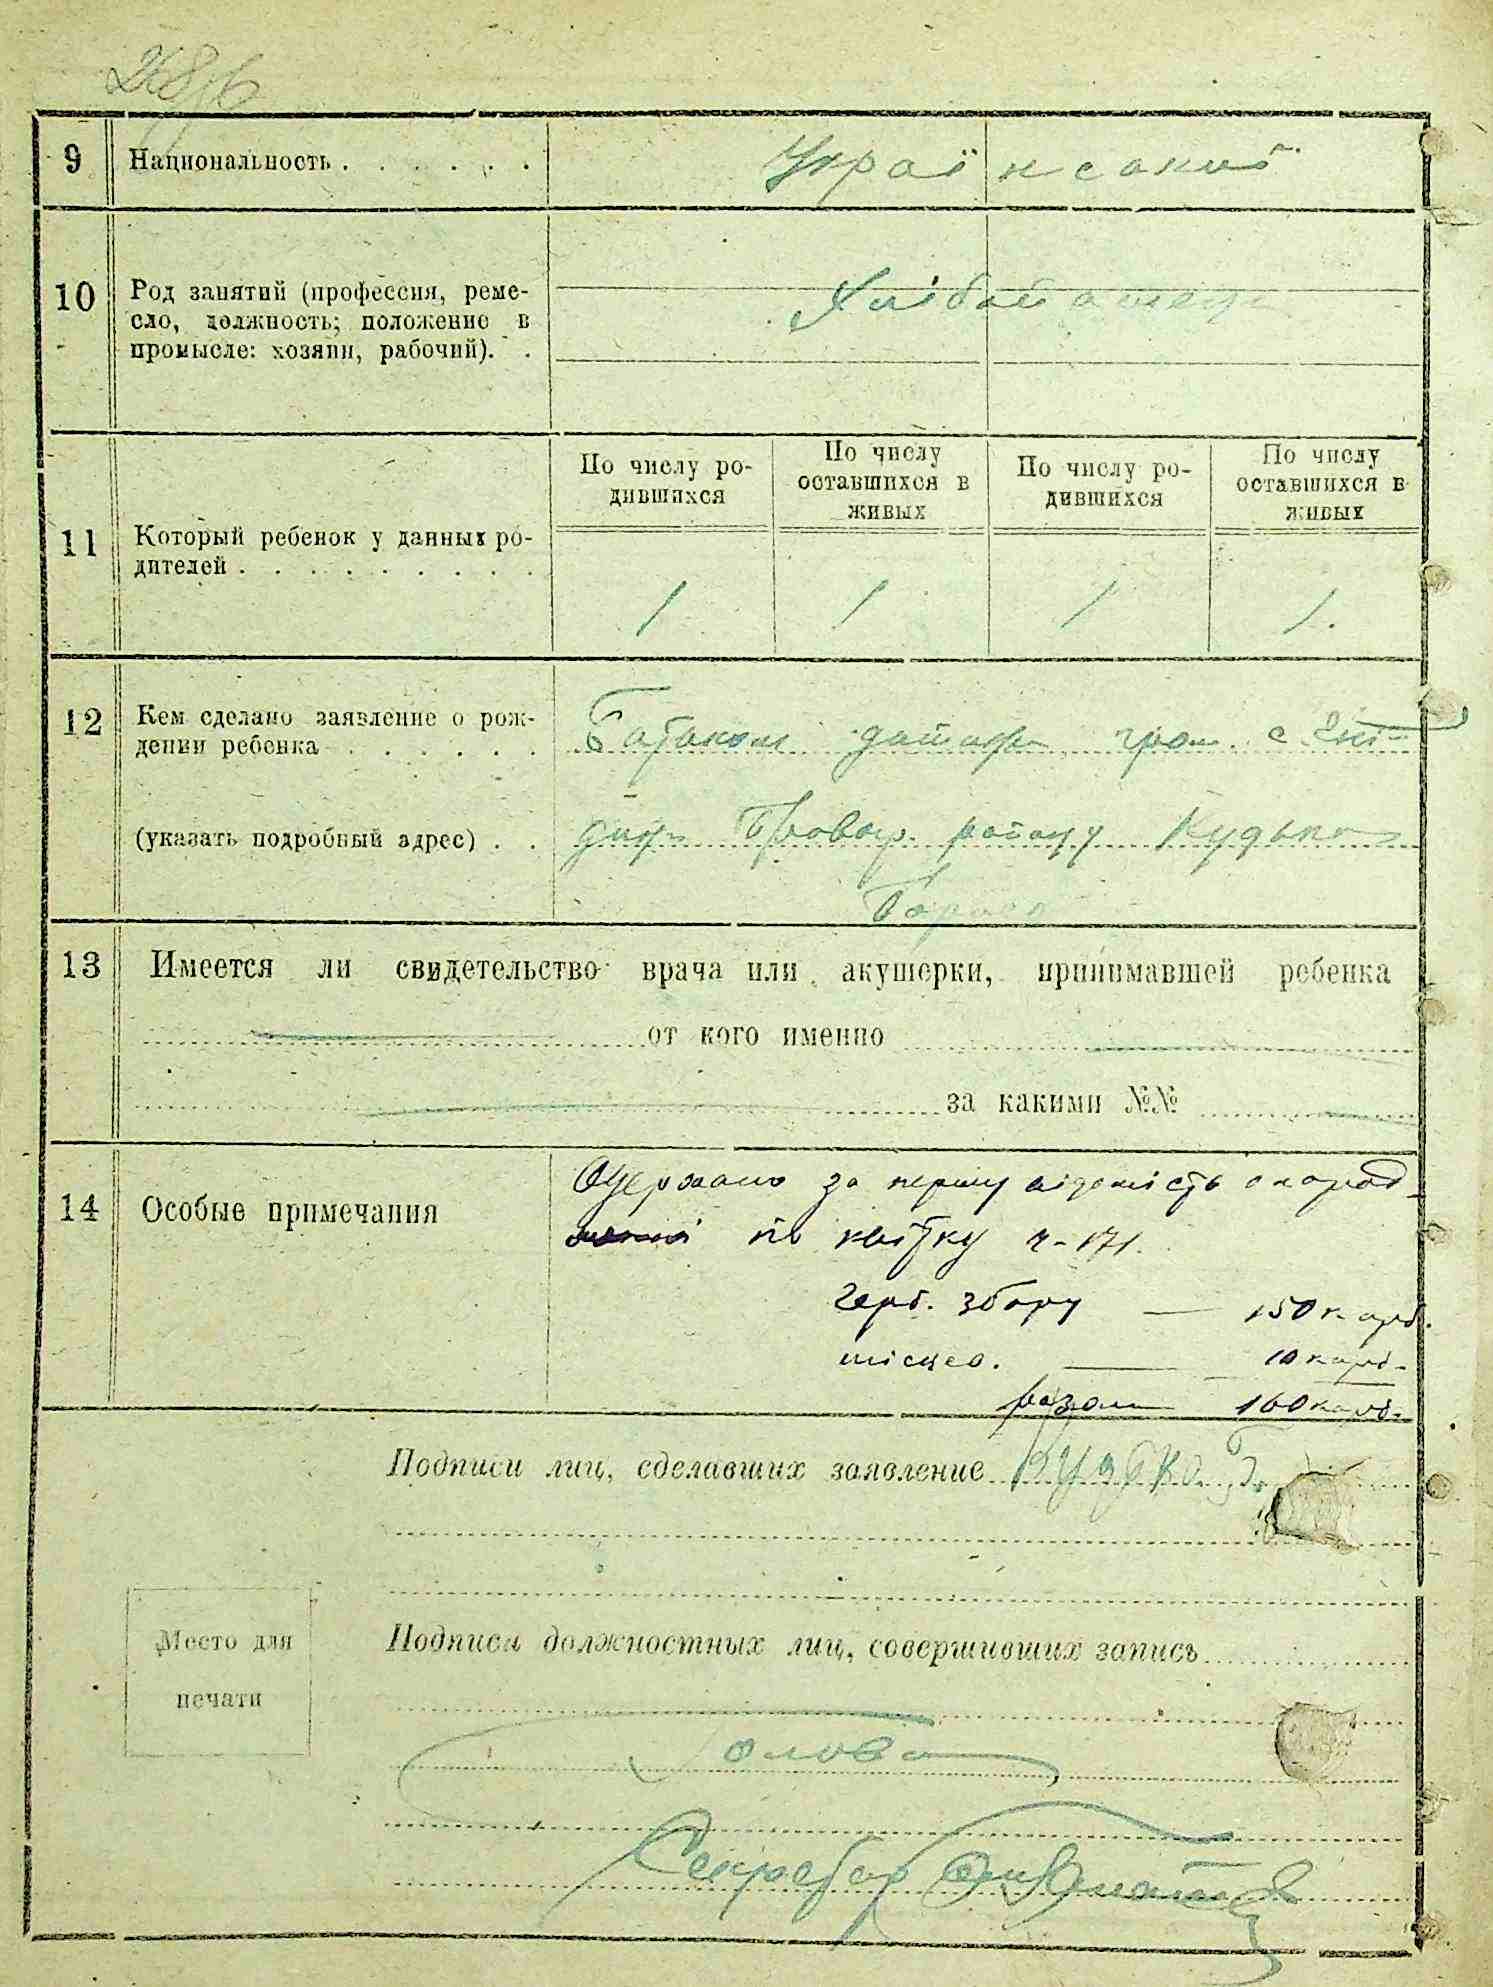 9 Национальность . . . . . .
Українсакий
10 Род занятий (профессия, реме-
сло, должность; положение в
промысле: хозяин, рабочий). .
По числу ро-
дившихся
По числу
оставшихся в
живых
По числу ро-
дившихся
По числу
оставшихся в
живых
11 Который ребенок у данных ро-
дителей . . . . . . . . .
1 1 1 1.
12 Кем сделано заявление о рож-
дении ребенка . . . . . .
Батьком гром. с.
(указать подробный адрес) . .
району Кудько
13 Имеется ли свидетельство врача или акушерки, принимавшей ребенка
от кого именно
за какими №№
14 Особые примечания
Одержано за першу відомість о народ-
по квітку ч-171.
герб. збору — 150 карб.
місцев. — 10 карб.
разом 160 карб.
Подписи лиц, сделавших заявление Кудько Б.
Место для
печати
Подписи должностных лиц, совершивших запись
Голова
Секретар